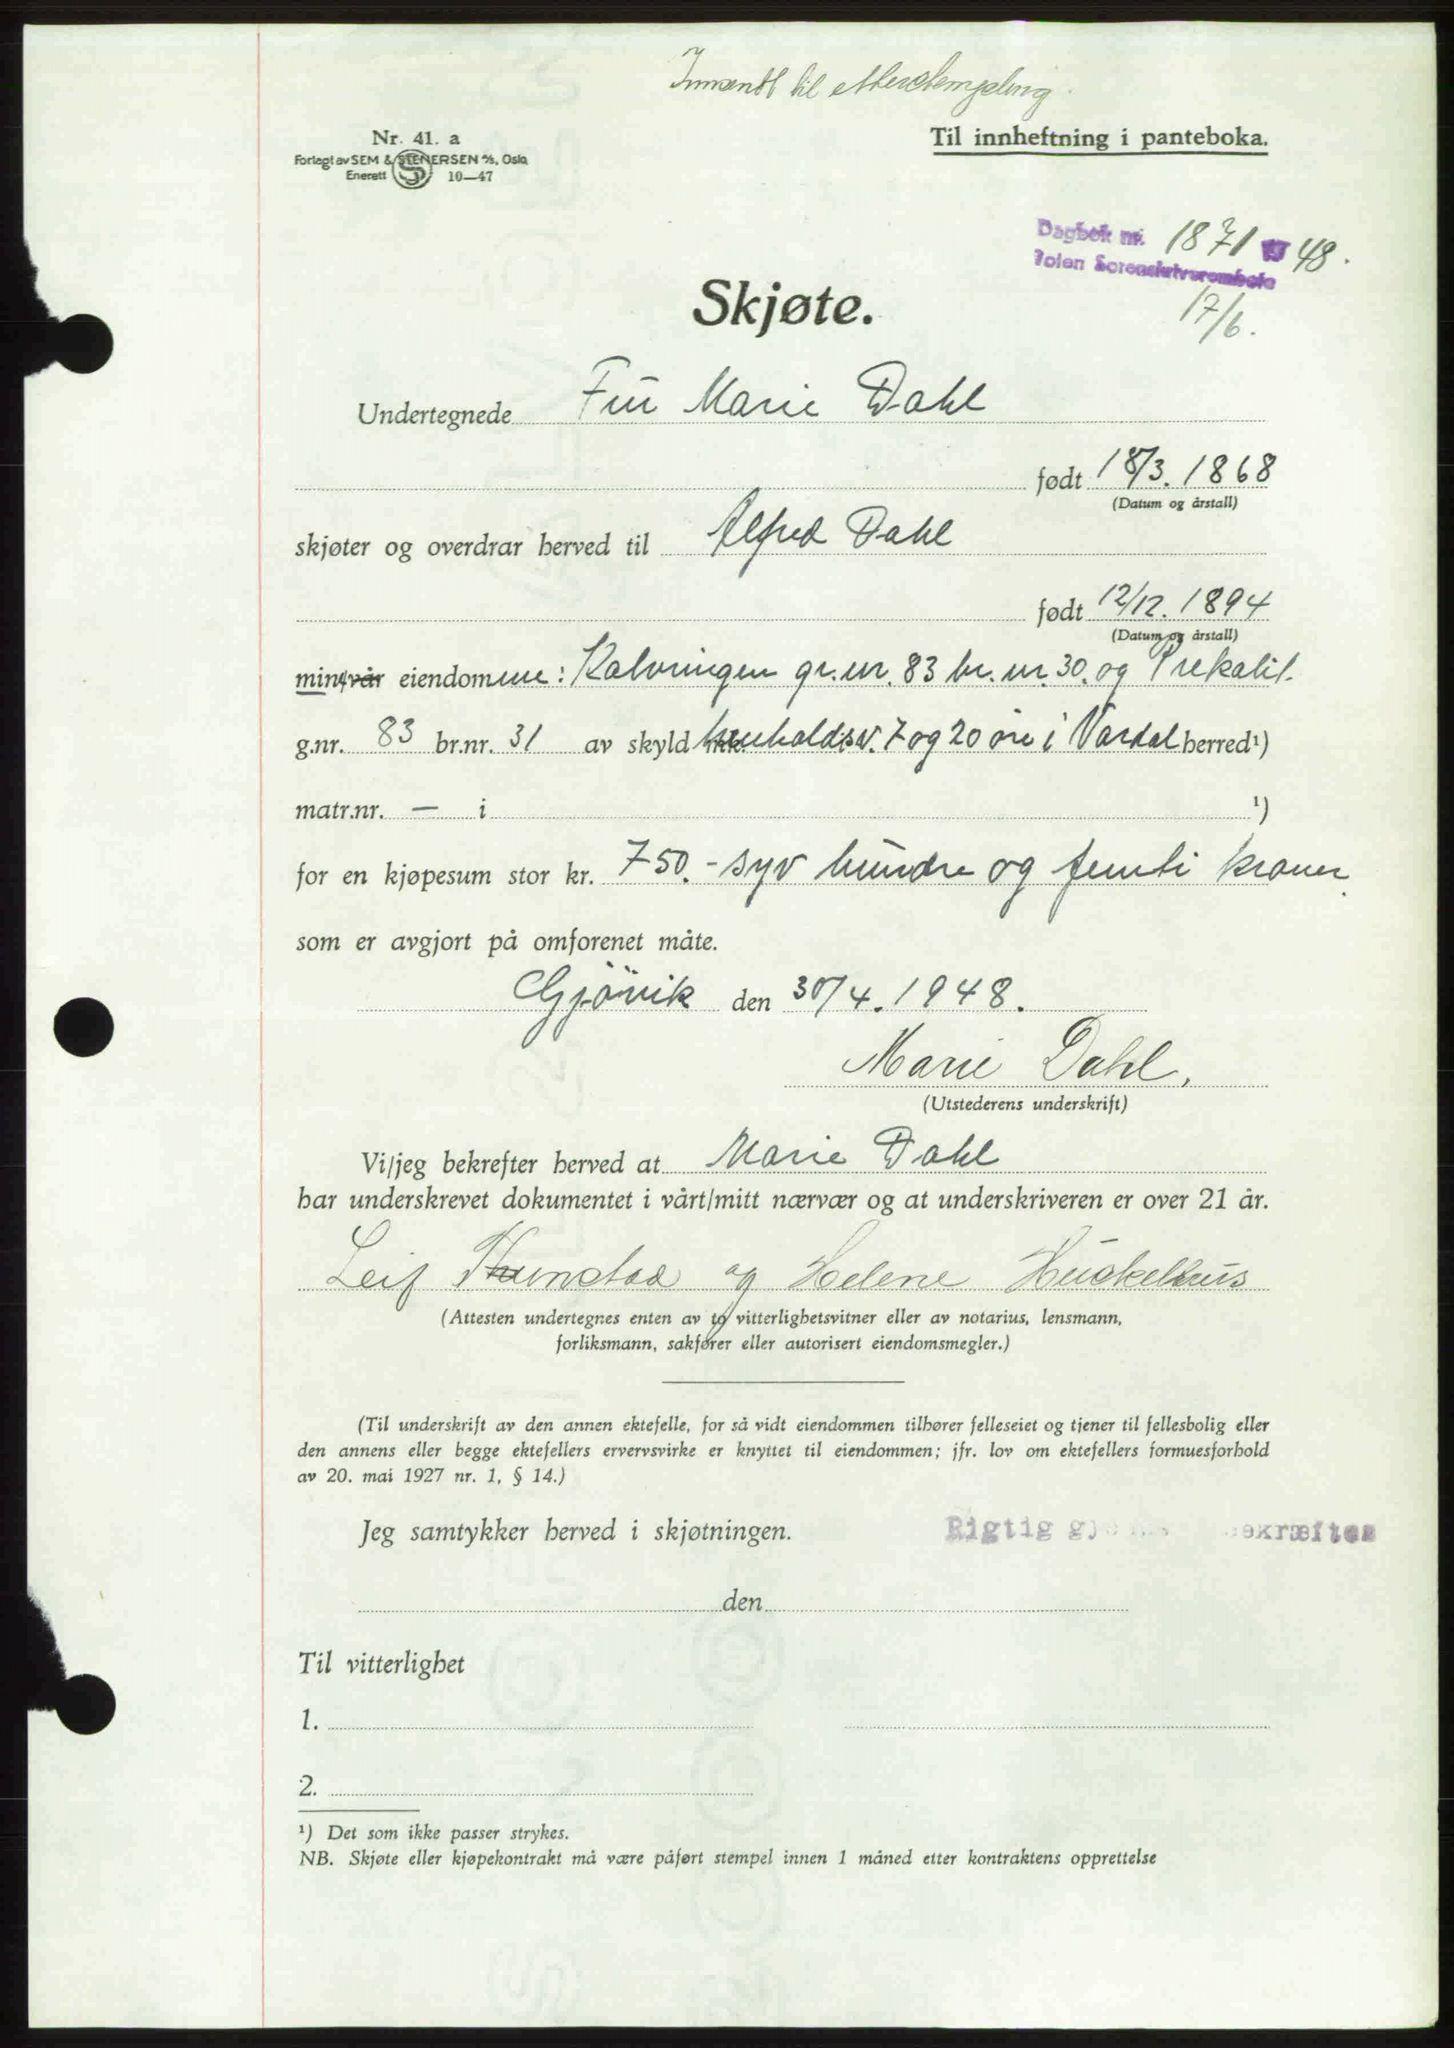 Innsendt til etterstempling.
Nr. 41. a
Forlagt av SEM & STENERSEN A/S, Oslo
Enerett 10—47
Til innheftning i panteboka.
Dagbok nr. 1871 19 48.
Toten Sorenskriverembete
17/6.
Skjøte.
Undertegnede Fru Marie Dahl
født 18/3. 1868
(Datum og årstall)
skjøter og overdrar herved til Alfred Dahl
født 12/12. 1894
(Datum og årstall)
min/vår eiendommene: Kalvringen gr.nr. 83 br.nr. 30. og
g.nr. 83 br.nr. 31 av skyld henholdsv. 7 og 20 øre i Vardal herred¹)
matr.nr. — i ¹)
for en kjøpesum stor kr. 750.- syv hundre og femti kroner.
som er avgjort på omforenet måte.
Gjövik den 30/4. 1948.
Marie Dahl,
(Utstederens underskrift)
Vi/jeg bekrefter herved at Marie Dahl
har underskrevet dokumentet i vårt/mitt nærvær og at underskriveren er over 21 år.
Leif og Helene
(Attesten undertegnes enten av to vitterlighetsvitner eller av notarius, lensmann,
forliksmann, sakfører eller autorisert eiendomsmegler.)
(Til underskrift av den annen ektefelle, for så vidt eiendommen tilhører felleseiet og tjener til fellesbolig eller
den annens eller begge ektefellers ervervsvirke er knyttet til eiendommen; jfr. lov om ektefellers formuesforhold
av 20. mai 1927 nr. 1, § 14.)
Jeg samtykker herved i skjøtningen.
Rigtig bekræftes
den
Til vitterlighet
1.
2.
¹) Det som ikke passer strykes.
NB. Skjøte eller kjøpekontrakt må være påført stempel innen 1 måned etter kontraktens opprettelse